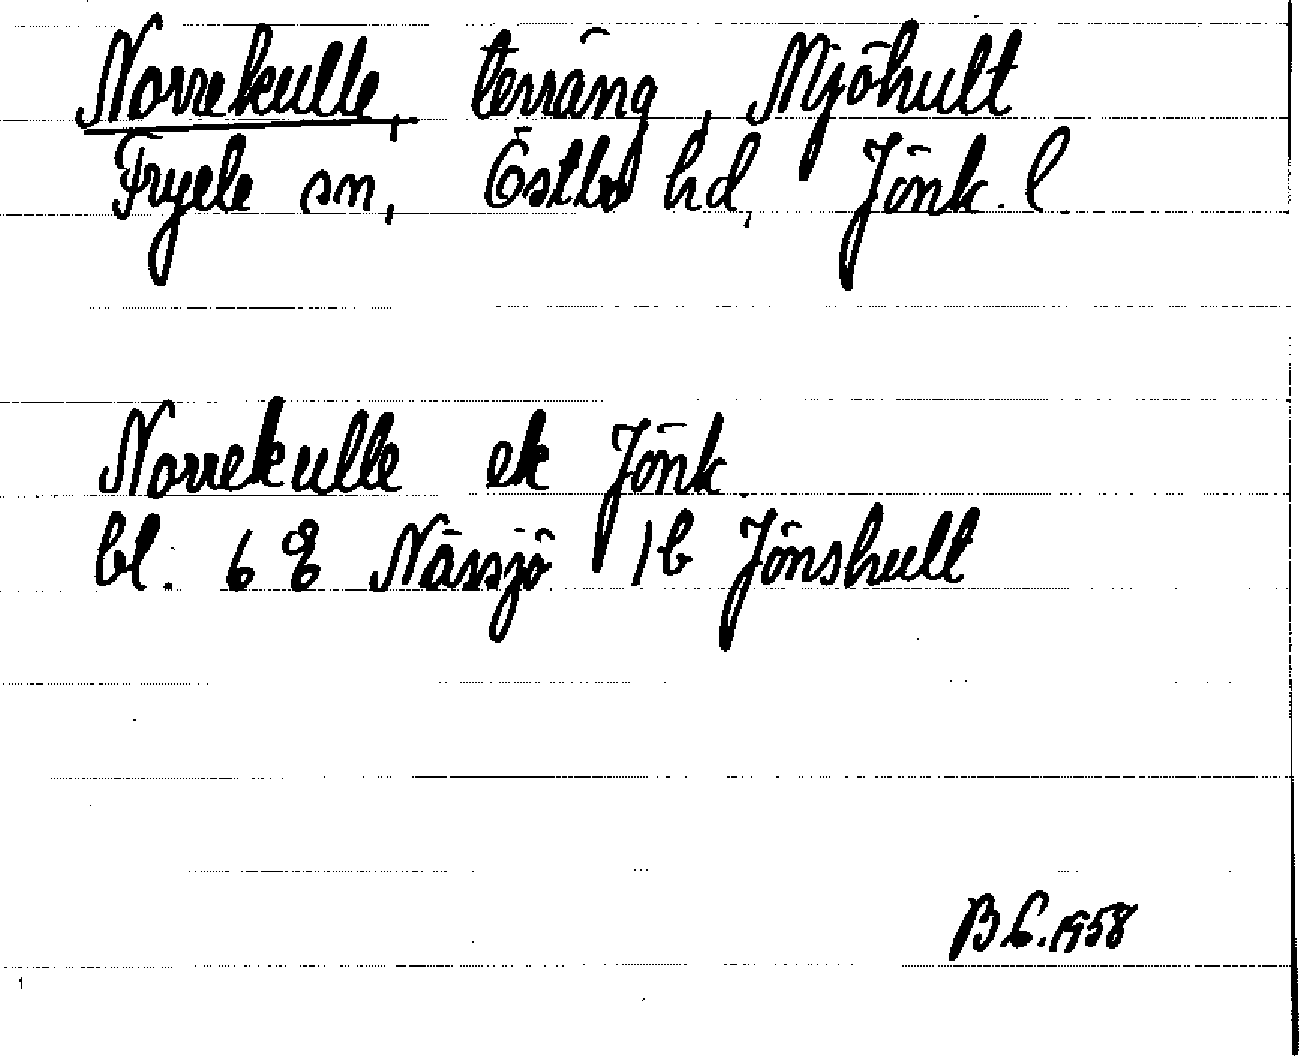 Norrekulle, terräng, Mjöhult
Fryele sn, Östbo hd, Jönk. l
Norrekulle ek Jönk.
bl. 6 E Nässjö 1b Jönshult
B.L. 1958
1